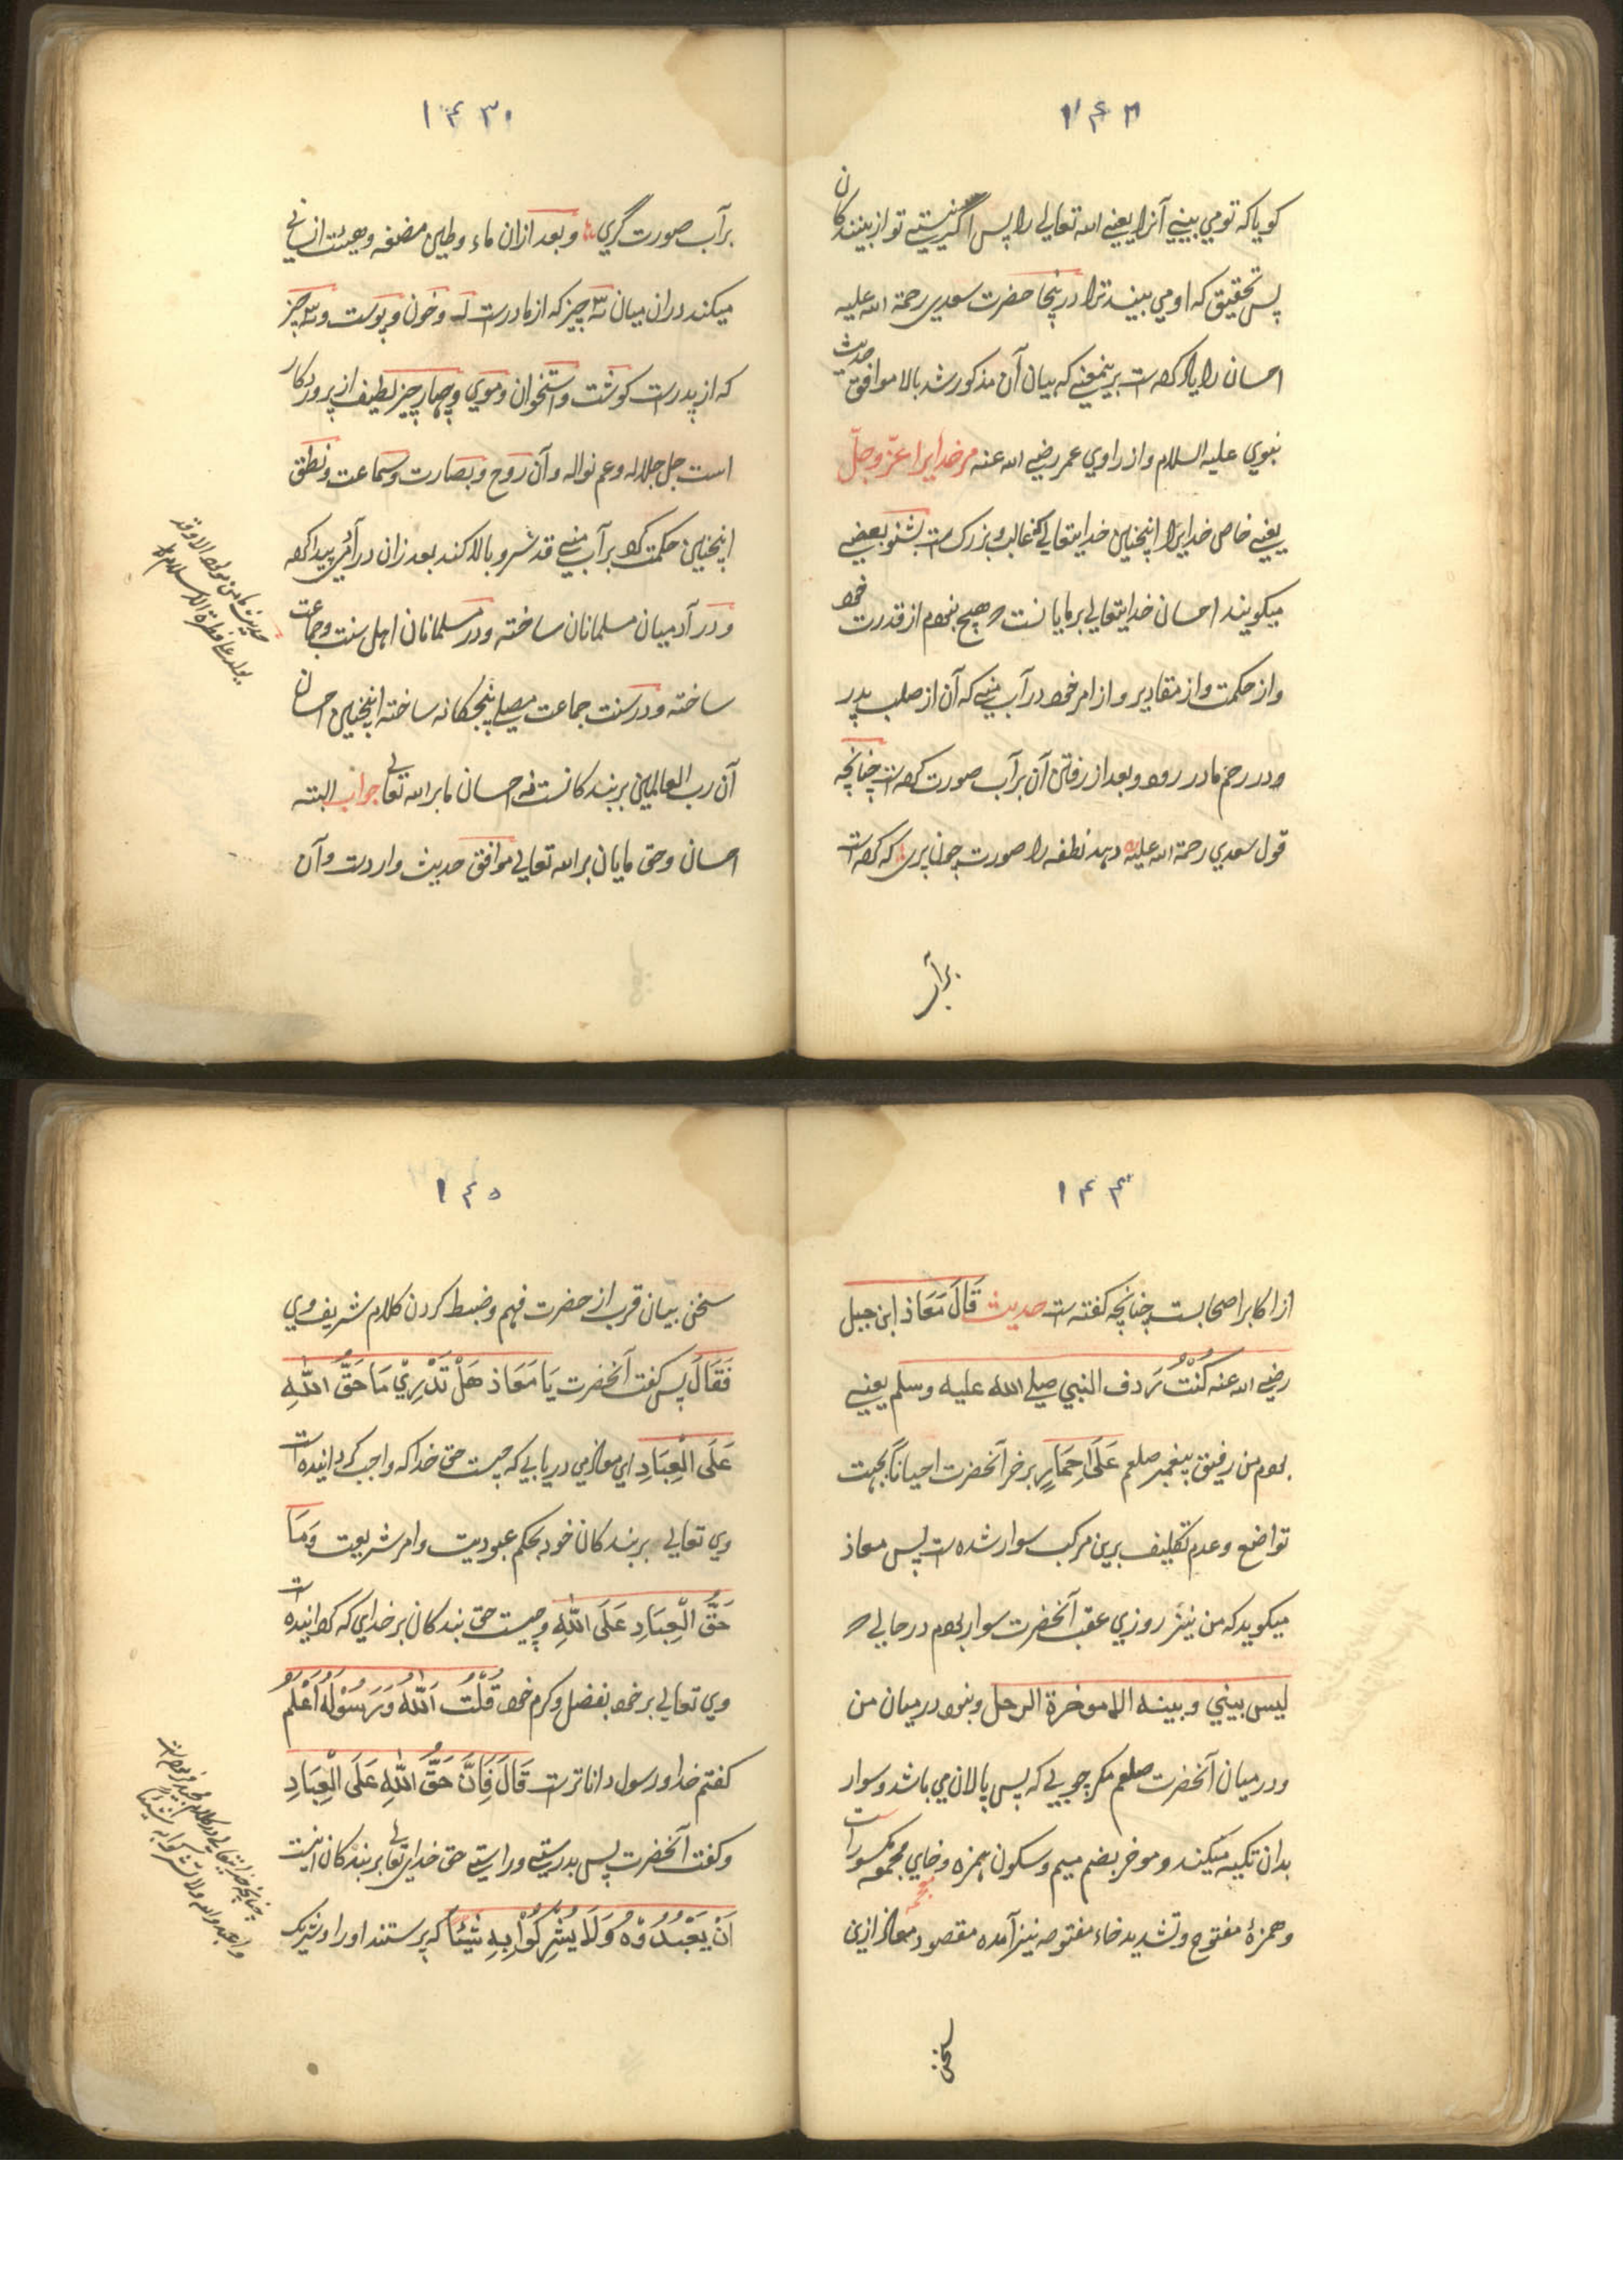 ۱۴۲
کویا که تو می بینی آنرا یعنی الله تعالی را پس اگر نیستی تو از بینندکان
پس تحقیق که او می بیند ترا درینجا حضرت سعدی رحمة الله علیه
احسان را یاد کرده است برینمعنی که بیان آن مذکور شد بالا موافق حدیث
نبوی علیه السلام و از راوی عمر رضی الله عنه مر خدایرا عزّ و جلّ
یعنی خاص خدایرا اینچنین خدایتعالی که غالب و بزرک است بشنو بعضی
میکویند احسان خدایتعالی بر مایانست که هیچ نبودم از قدرت خود
و از حکمت و از مقادیر و از امر خود در آب منی که آن از صلب پدر
و در رحم مادر رود و بعد از رفتن آن بر آب صورت کرده است چنانچه
قول سعدی رحمة الله علیه دهد نطفه را صورت چون پری که کرده است
بر آب
۱۴۳
بر آب صورت گری و بعد ازان ماء و طین مضغه و هیئت انسانی
میکند دران میان سه چیز که از مادر است و خون و پوست و سه چیز
که از پدر است کوشت و استخوان و موی و چهار چیز لطیف از پروردکار
است جل جلاله و عم نواله و آن روح و بصارت و سماعت و نطق
اینچنین حکمت که بر آب منی قد سرو بالا کند بعد زان در آدمی پیدا کرد
و در آدمیان مسلمانان ساخته و در مسلمانان اهل سنت و جماعت
ساخته و در سنت جماعت مصلی پنجکانه ساخته اینچنین احسان
آن رب العالمین بر بندکانست نه احسان ما بر الله تعالی جواب البته
احسان و حق مایان بر الله تعالی موافق حدیث وارد است و آن
حدیث ما من مولود الا وقد
یولد علی فطرة الاسلام
۱۴۴
از اکابر اصحابست چنانچه کفته است حدیث قَالَ مَعَاذ ابن جبل
رضی الله عنه کُنْتُ رَدف النبی صلی الله علیه وسلم یعنی
بودم من رفیق پیغمبر صلعم عَلَی حِمَارٍ بر خر آنحضرت احیاناً بجهت
تواضع و عدم تکلیف برین مرکب سوار شده است پس معاذ
میکوید که من نیز روزی عقب آنحضرت سوار بودم در حالی که
لیس بینی و بینه الا موخرة الرحل و نبود درمیان من
و درمیان آنحضرت صلعم مکر چوبی که پس پالان می باشد و سوار
بدان تکیه میکند و موخر بضم میم و سکون همزه و خای معجمه مکسور است
و همزهٔ مفتوح و تشدید خاء مفتوحه نیز آمده مقصود معاذ ازین
سخن
۱۴۵
سخن بیان قرب از حضرت فهم و ضبط کردن کلام شریف وی
فَقَالَ پس کفت آنحضرت یَا مَعَاذ هَلْ تَدْرِیْ مَا حَقُّ اللهِ
عَلَی الْعِبَادِ ای معاذ می دریابی که چیست حق خدا که واجب کردانیده است
وی تعالی بر بندکان خود بحکم عبودیت و امر شریعت وَمَا
حَقُّ الْعِبَادِ عَلَی اللهِ و چیست حق بندکان بر خدای که کردانیده است
وی تعالی بر خود بفضل و کرم خود قُلْتُ اَللهُ وَرَسُوْلُهُ اَعْلَمُ
کفتم خدا و رسول داناتر است قَالَ فَاِنَّ حَقُّ اللهِ عَلَی الْعِبَادِ
و کفت آنحضرت پس بدرستی و راستی حق خدای تعالی بر بندکان اینست
اَنْ یَعْبُدُوْهُ وَلَا یُشْرِکُوْا بِهِ شَیْئًا که پرستند او را و شریک
چنانچه خدایتعالی در کلام مجید فرموده است
واعبدوا الله ولا تشرکوا به شیئا